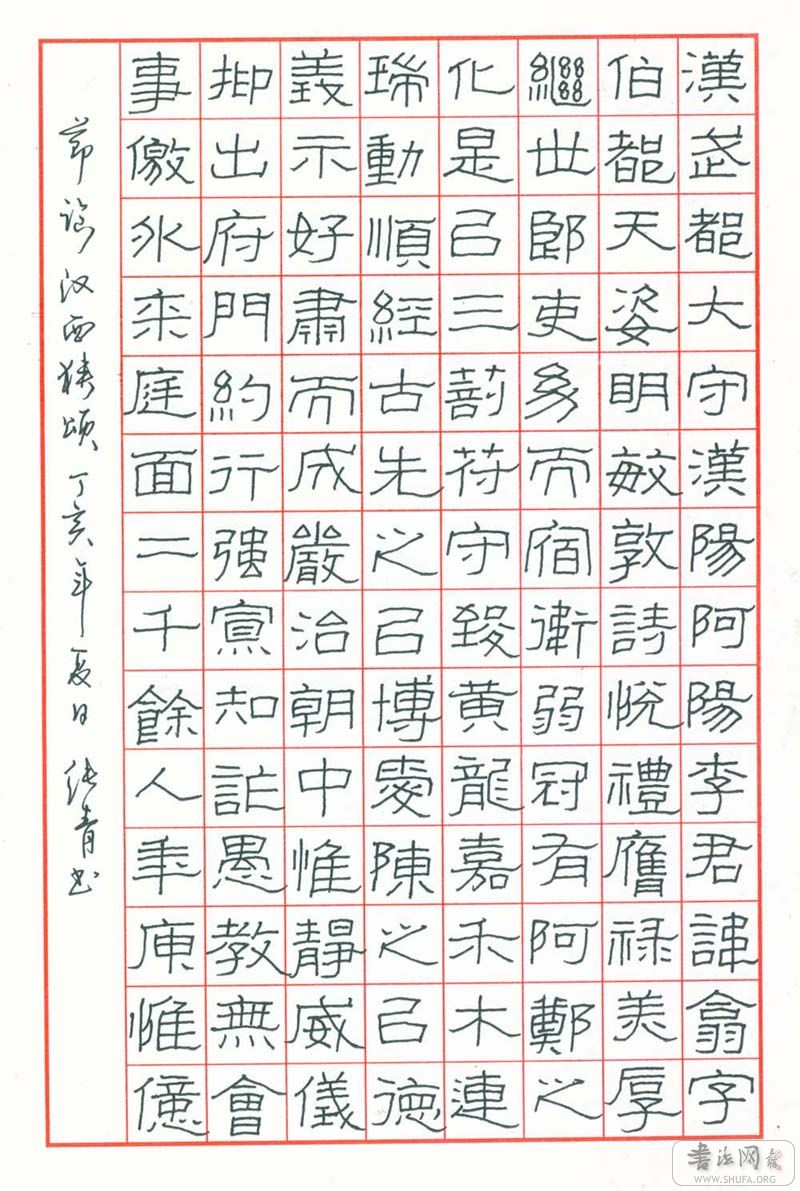 漢武都大守漢陽阿陽李君諱翕字
伯都天姿明敏敦詩悅禮膺禄美厚
繼世郎吏幼而宿衛弱冠有阿鄭之
化是㠯三剖符守致黄龍嘉禾木連
瑞動順經古先之㠯博愛陳之㠯德
義示好肅而成嚴治朝中惟靜威儀
抑出府門約行强寔知詐愚教無會
事儌外來庭面二千餘人秊庾惟億
节临汉西狭颂丁亥年夏日张青书
书法网
WWW.SHUFA.ORG